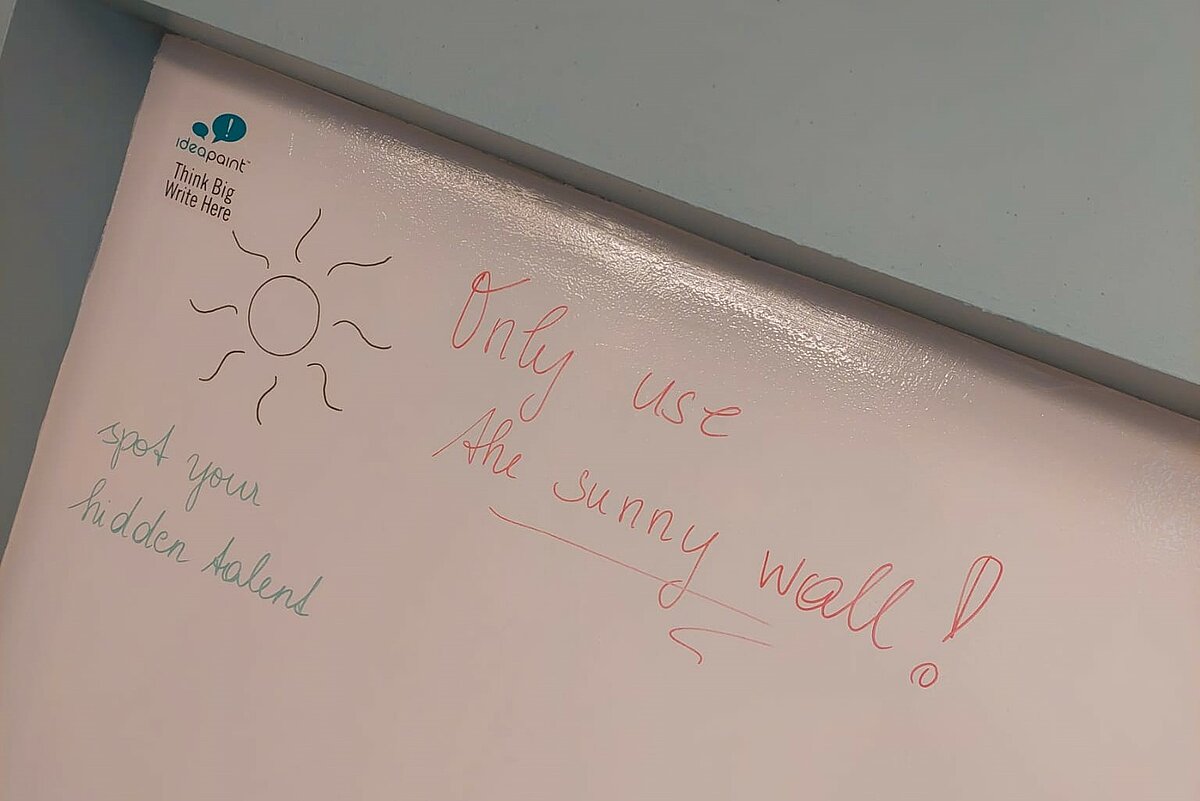 ideapaint™
Think Big
Write Here
Only use
the sunny wall!
spot your
hidden talent